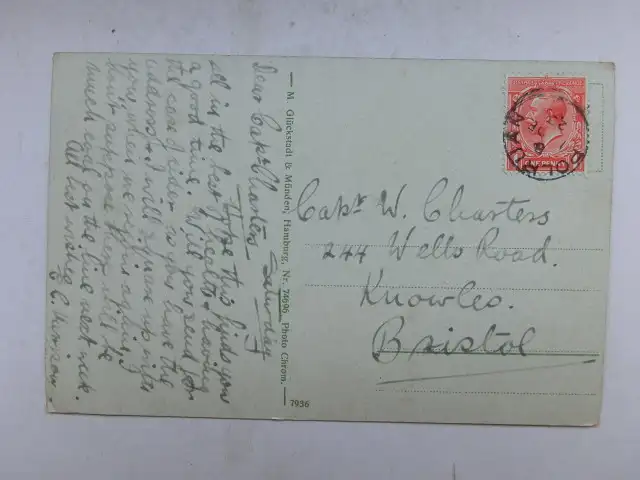 Saturday
Dear Capt Charters
Hope this finds you
all in the best of health & having
a good time. Will you send for
the case of cider as you have the
and I will square up with
you when we again, I
don't suppose there will be
much coal on the line next week.
All best wishes
M. Glückstadt & Münden, Hamburg, Nr. 74696 Photo Chrom.
7936
ONE PENNY
Capt W. Charters
244 Wells Road.
Knowles.
Bristol